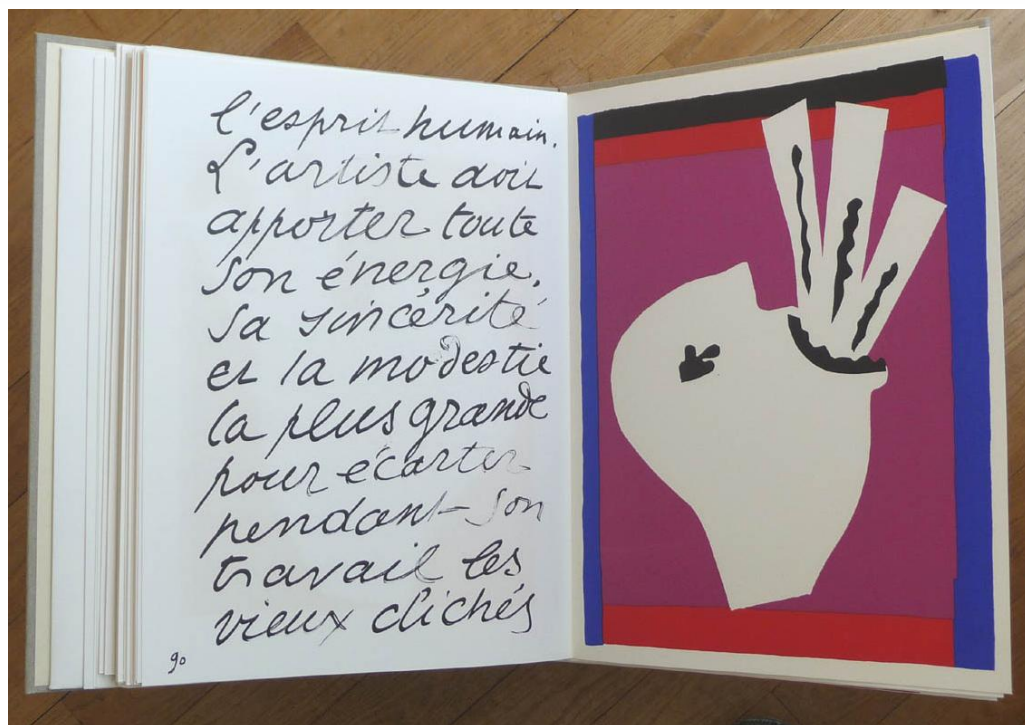 l'esprit humain.
L'artiste doit
apporter toute
son énergie,
sa sincérité
et la modestie
la plus grande
pour écarter
pendant son
travail les
vieux clichés
90